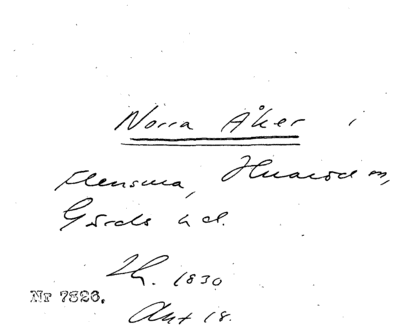 Norra Åker i
Flensma, Huaröd sn,
Gärds hd.
Lh. 1830
Nr 7326.
Akt 18.